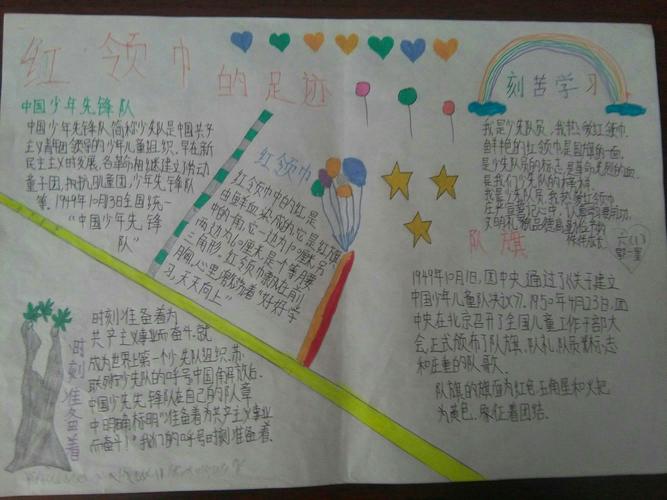 红领巾
的足迹
中国少年先锋队
中国少年先锋队简称少先队是中国共产
主义青团领导的少年儿童组织,早在新
民主主义时发展,各革命根据建立了劳动
童子团,抗执儿童团,少年先锋队
等,1949年10月3全国统一
“中国少年先锋
队”
红领巾
红领巾中的红是
由鲜血染成的它是红旗
中的角它一边为10厘米另
两边为6厘米是个等腰
三角形,红领巾飘扬在前
胸心里激励着“好好学
习,天天向上”
刻苦学习
我是少先队员,我热爱红领巾,
鲜艳的红领巾是国旗的一角,
是少先队员的标志,是革命先烈的血,
是我们少先队的
我是少先队员,我热爱红领巾
在
文明礼
六(1)
队旗
1949年10月1日,团中央通过了《关于建立
中国少年儿童队决议》,1950年4月23日,团
中央在北京召开了全国儿童工作干部大
会,正式颁布了队旗、队礼,队员标志
和庄重的队歌.
队旗的旗面为红色五角星和火把
为黄色.象征着团结.
时刻准备着
时刻准备着为
共产主义事业而奋斗,就
成为世界上第一个少先队组织,苏
联列少先队的呼号中国角解放后.
中国少先先锋队在自己的队章
中明确标明“准备着为共产主义事业
而奋斗!”我们的呼号时刻准备着.